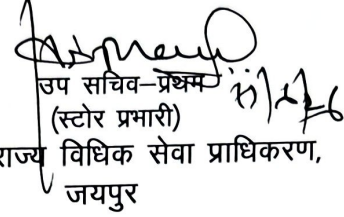 उप सचिव–प्रथम
(स्टोर प्रभारी)
राज्य विधिक सेवा प्राधिकरण,
जयपुर